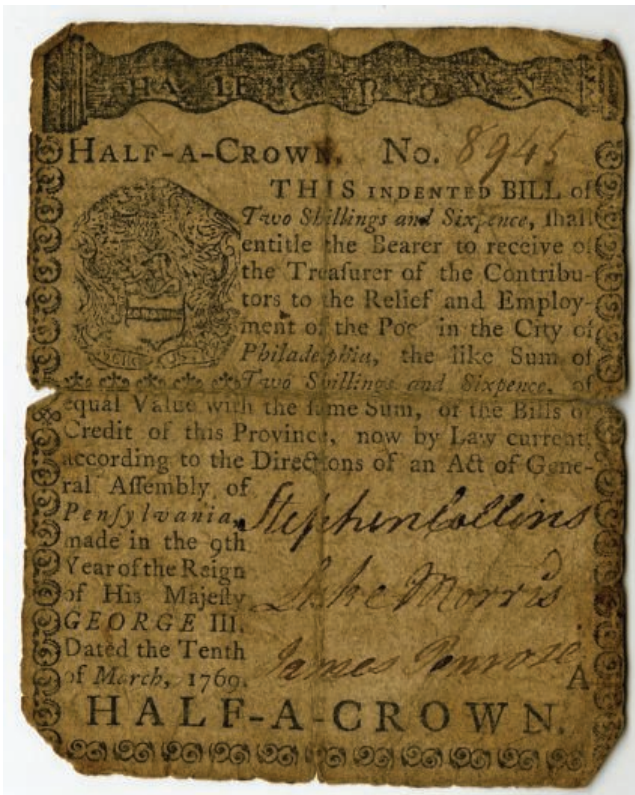 HALF-A-CROWN
HALF-A-CROWN. No. 8945
THIS INDENTED BILL of
Two Shillings and Sixpence, ſhall
entitle the Bearer to receive of
the Treaſurer of the Contribu-
tors to the Relief and Employ-
ment of the Poor in the City of
Philadelphia, the like Sum of
Two Shillings and Sixpence, of
equal Value with the ſame Sum, of the Bills of
Credit of this Province, now by Law current,
according to the Directions of an Act of Gene-
ral Aſſembly of
Penſylvania,
made in the 9th
Year of the Reign
of His Majeſty
GEORGE III.
Dated the Tenth
of March, 1769.
Stephen Collins
Luke Morris
James Penrose
A
HALF-A-CROWN.